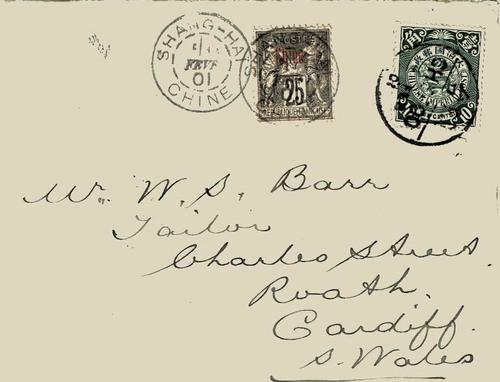 SHANG-HAI
FEVR
01
CHINE
Chine
25
10
Mr. W. S. Barr
Tailor
Charles Street
Roath.
Cardiff.
S. Wales